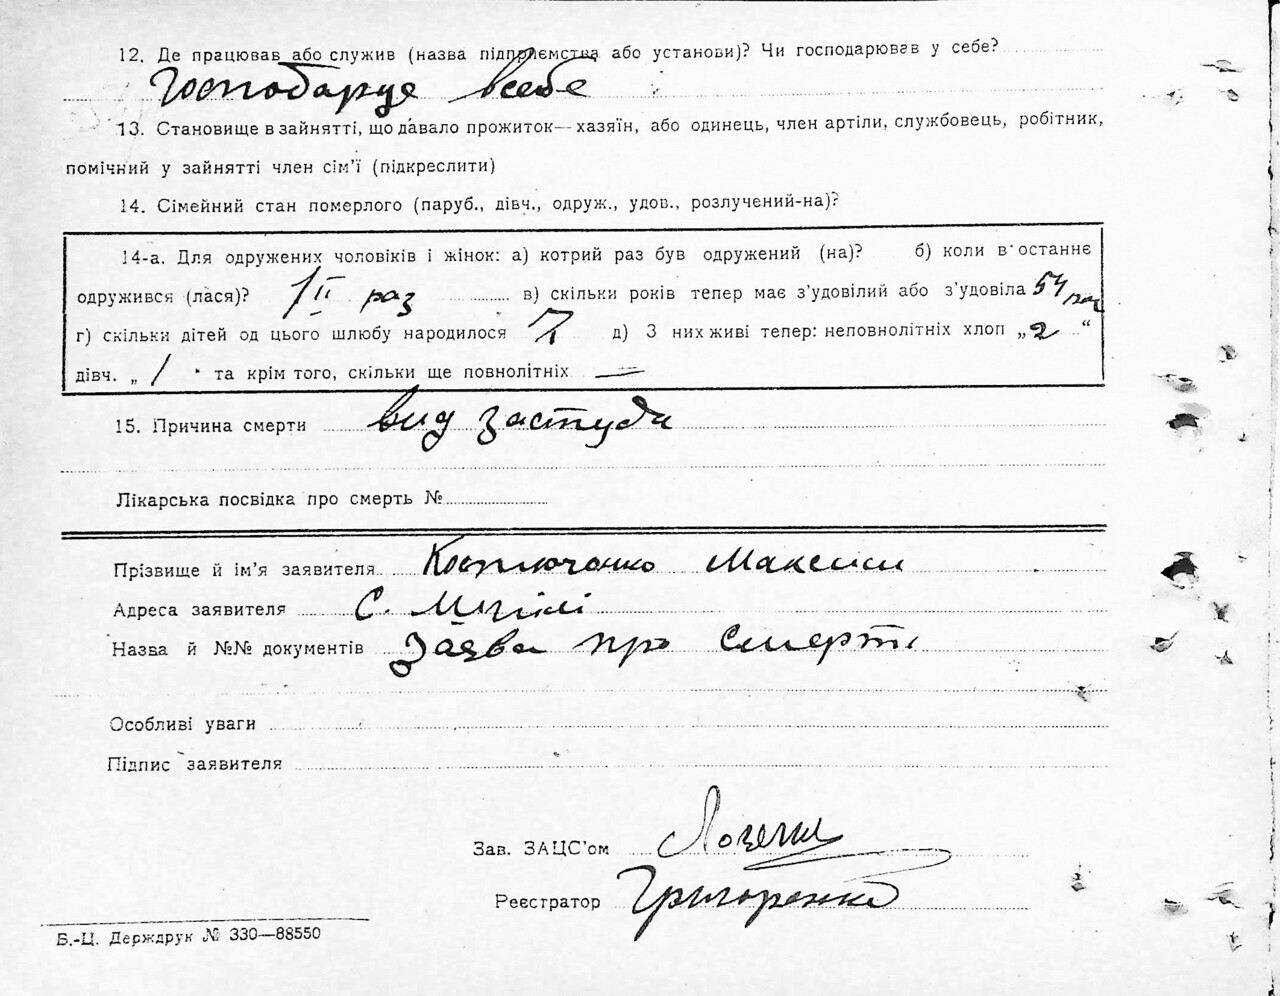 12. Де працював або служив (назва підприємства або установи)? Чи господарював у себе?
Господарує всебе
13. Становище в зайнятті, що давало прожиток—хазяїн, або одинець, член артіли, службовець, робітник,
помічний у зайнятті член сім'ї (підкреслити)
14. Сімейний стан померлого (паруб., дівч., одруж., удов., розлучений-на)?
14-а. Для одружених чоловіків і жінок: а) котрий раз був одружений (на)? б) коли в останнє
одружився (лася)? II раз в) скільки років тепер має з'удовілий або з'удовіла 54
г) скільки дітей од цього шлюбу народилося 7 д) З них живі тепер: неповнолітніх хлоп „2“
дівч. „1" та крім того, скільки ще повнолітніх —
15. Причина смерти вид застуди
Лікарська посвідка про смерть №
Прізвище й ім'я заявителя Костюченко Максим
Адреса заявителя С.
Назва й №№ документів Заява про смерть
Особливі уваги
Підпис заявителя
Зав. ЗАЦС'ом
Реєстратор Григоренко
Б.-Ц. Держдрук № 330—88550